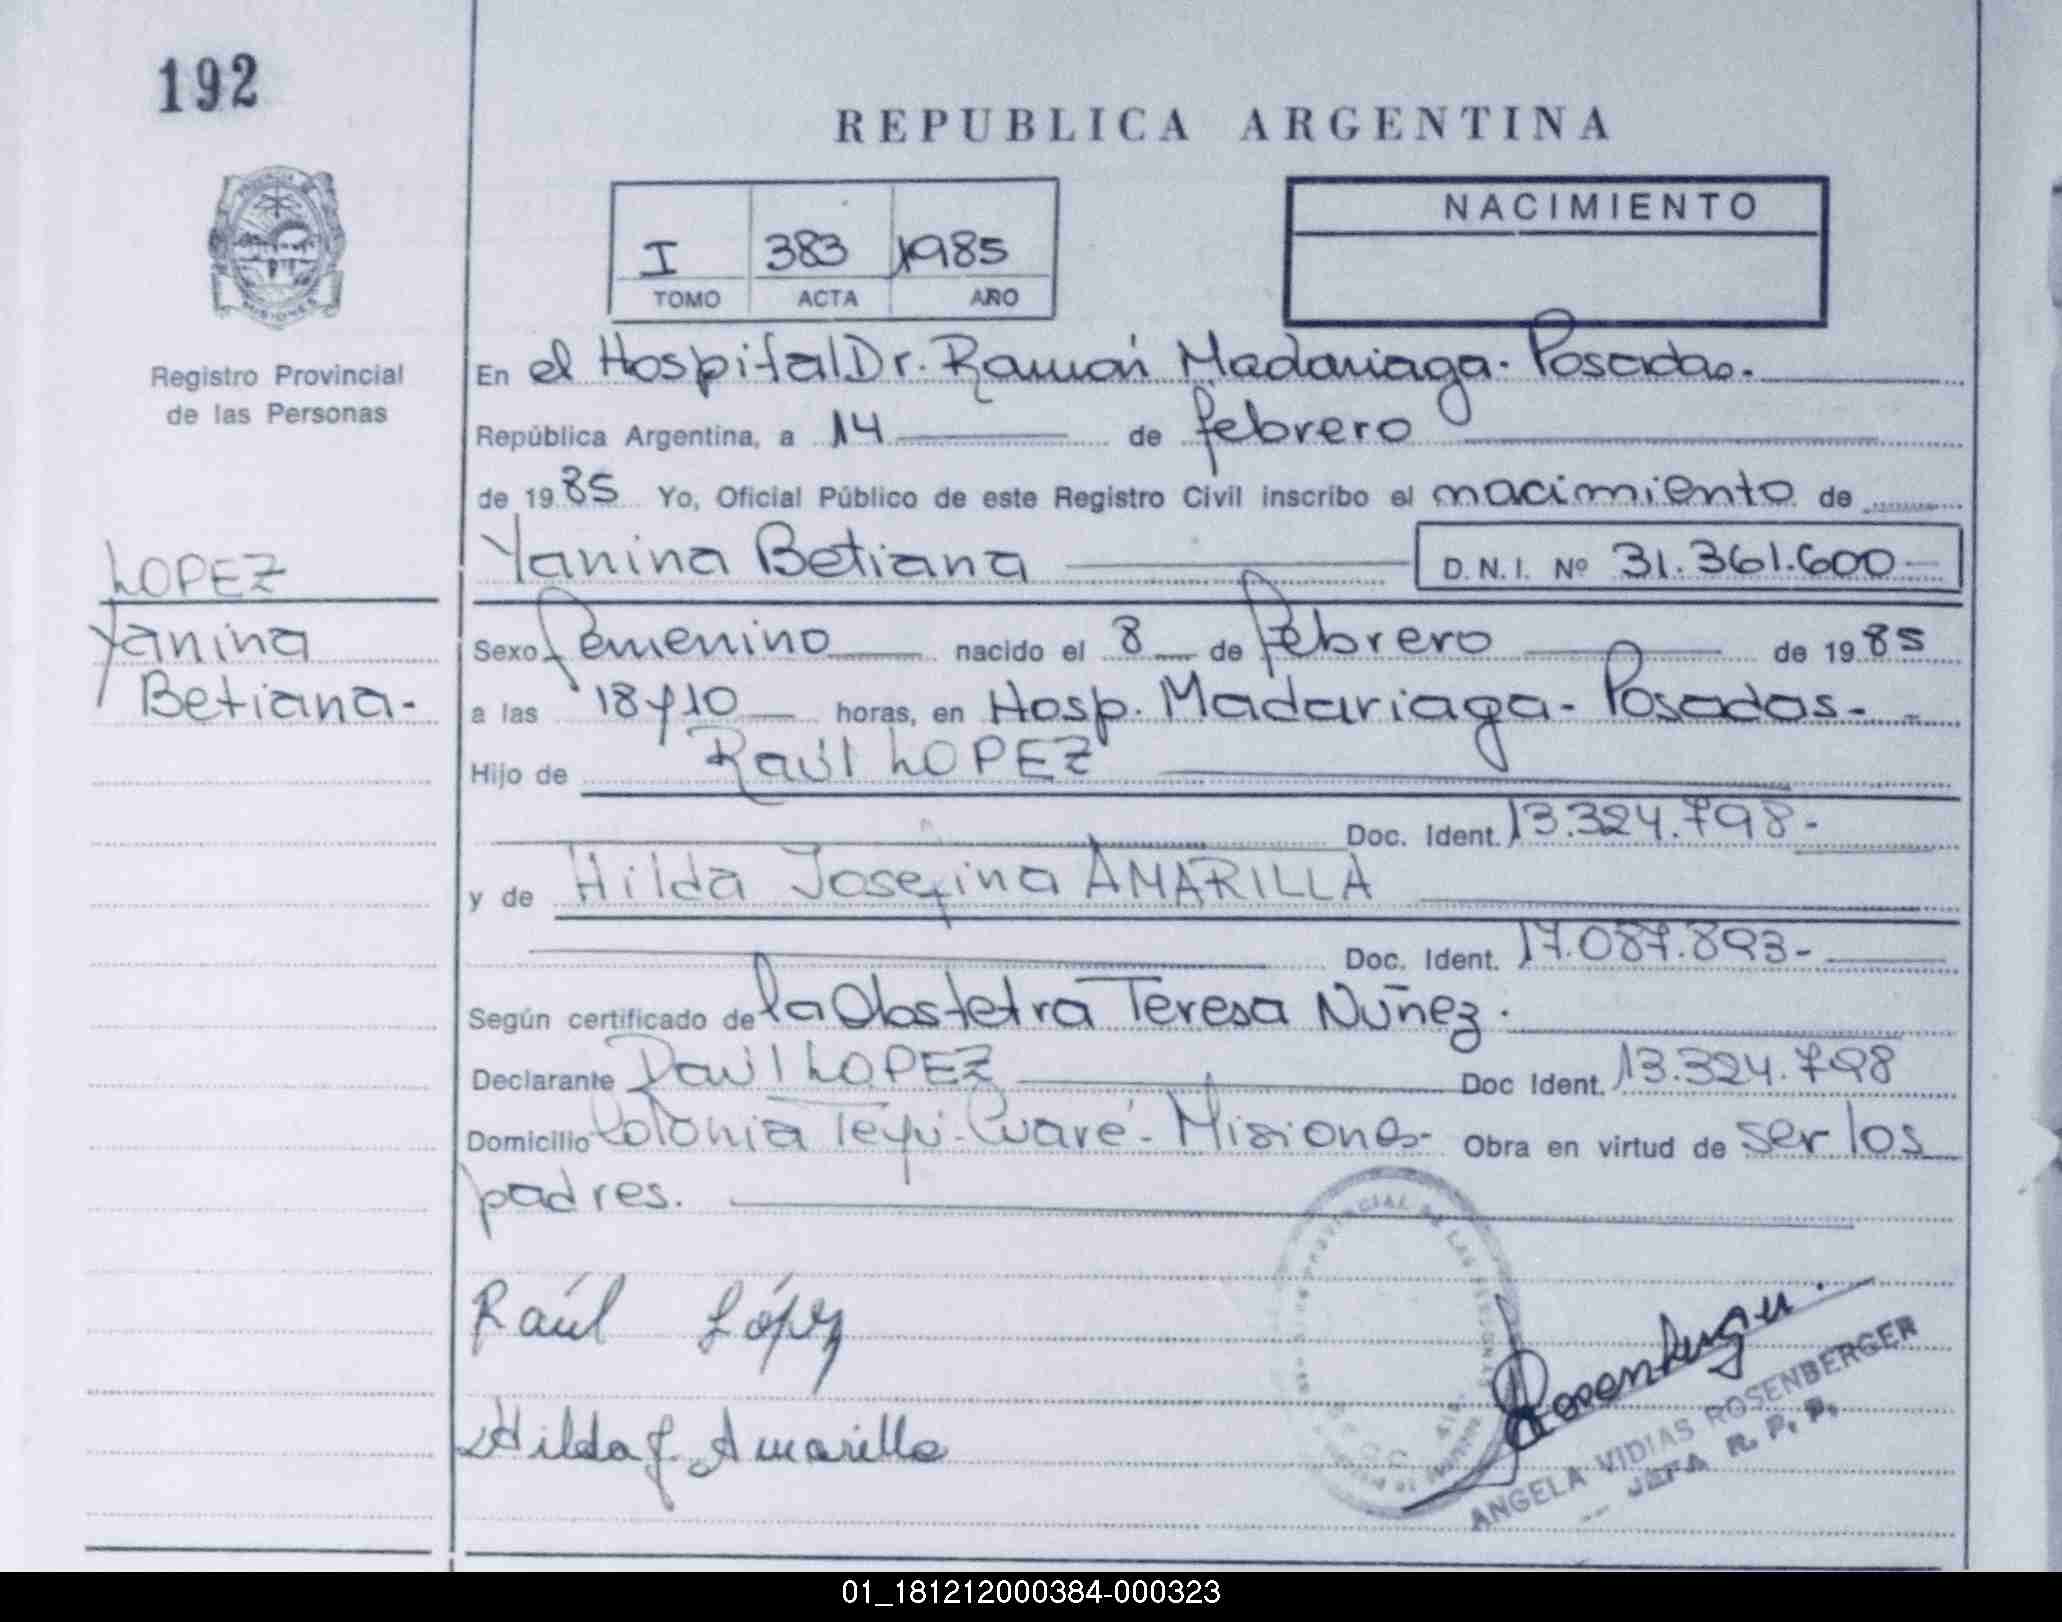 192
REPUBLICA ARGENTINA
NACIMIENTO
I 383 1985
TOMO ACTA AÑO
Registro Provincial
de las Personas
En el Hospital Dr. Ramón Madariaga - Posadas.
República Argentina, a 14 de febrero
de 1985 Yo, Oficial Público de este Registro Civil inscribo el nacimiento de
LOPEZ
Yanina Betiana D.N.I. Nº 31.361.600
Yanina
Betiana-
Sexo femenino nacido el 8 de febrero de 1985
a las 18 y 10 horas, en Hosp. Madariaga - Posadas-
Hijo de Raúl LOPEZ
Doc. Ident. 13.324.798-
y de Hilda Josefina AMARILLA
Doc. Ident. 17.087.893-
Según certificado de la Obstetra Teresa Núñez.
Declarante Raúl LOPEZ Doc Ident. 13.324.798
Domicilio Colonia Teyú-Cuaré-Misiones- Obra en virtud de ser los
padres.
Raúl López
Hilda J. Amarilla
PROVINCIAL DE LAS PERSONAS
Rosenberger
ANGELA VIDIAS ROSENBERGER
JEFA R. P. P.
01_181212000384-000323